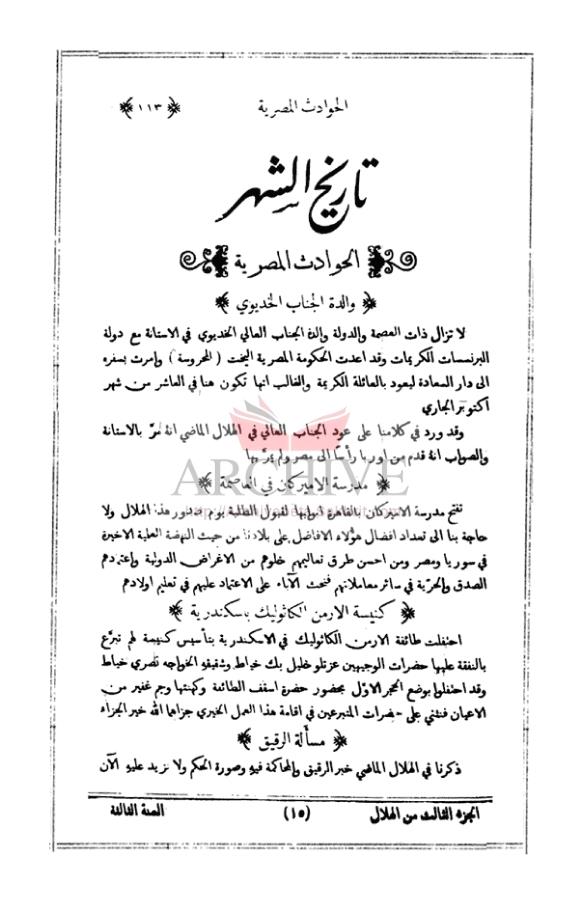 الحوادث المصرية ﴿ ١١٣ ﴾
تاريخ الشهر
الحوادث المصرية
﴿ والدة الجناب الخديوي ﴾
لا تزال ذات العصمة والدولة والدة الجناب العالي الخديوي في الاستانة مع دولة
البرنسسات الكريمات وقد اعدت الحكومة المصرية اليخت ( المحروسة ) وامرت بسفره
الى دار السعادة ليعود بالعائلة الكريمة والغالب انها تكون هنا في العاشر من شهر
اكتوبر الجاري
وقد ورد في كلامنا على عود الجناب العالي في الهلال الماضي انهُ مرَّ بالاستانة
والصواب انهُ قدم من اوربا رأسًا الى مصر ولم يمرَّ بها
﴿ مدرسة الاميركان في العاصمة ﴾
تفتح مدرسة الاميركان بالقاهرة ابوابها لقبول الطلبة يوم صدور هذا الهلال ولا
حاجة بنا الى تعداد افضال هؤلاء الافاضل على بلادنا من حيث النهضة العلمية الاخيرة
في سوريا ومصر ومن احسن طرق تعاليمهم خلوهم من الاغراض الدولية واعتمادهم
الصدق والحرّية في سائر معاملاتهم فنحث الآباء على الاعتماد عليهم في تعليم اولادهم
﴿ كنيسة الارمن الكاثوليك باسكندرية ﴾
احتفلت طائفة الارمن الكاثوليك في الاسكندرية بتأسيس كنيسة لهم تبرَّع
بالنفقة عليها حضرات الوجيهين عزتلو خليل بك خياط وشقيقهِ الخواجه نصري خياط
وقد احتفلوا بوضع الحجر الاوَّل بحضور حضرة اسقف الطائفة وكهنتها وجم غفير من
الاعيان فنثني على حضرات المتبرعين في اقامة هذا العمل الخيري جزاهما الله خير الجزاء
﴿ مسألة الرقيق ﴾
ذكرنا في الهلال الماضي خبر الرقيق والمحاكمة فيهِ وصورة الحكم ولا نزيد عليهِ الآن
الجزء الثالث من الهلال (١٥) السنة الثالثة
ARCHIVE